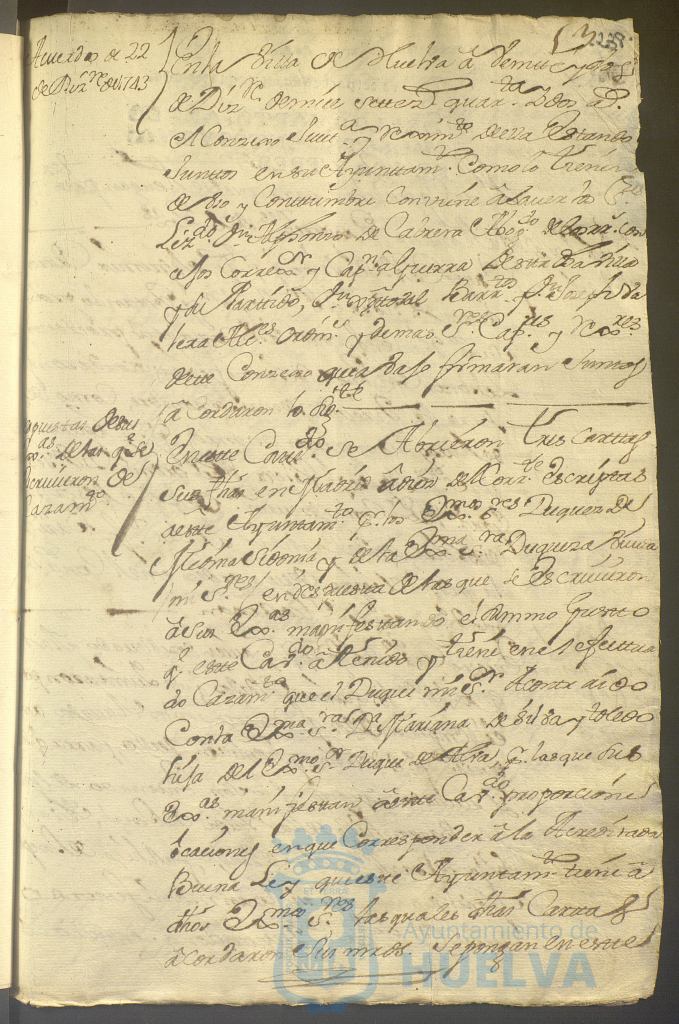 Acuerdo de 22
de Diz.re de 1743
En la Villa de Huelva a veinte y dos
de Diz.re de mil settez.s quar.ta y tres a.s
el Conzexo Justi.a y reximi.to de ella estando
Juntos en su Ayuntam.to como lo tienen
de uso y Constumbre Conviene a saver los S.res
Liz.do D.n Alphonso de Cabrera Abog.do de los R.s Con
sejos Correx.or y Cap.n a Guerra de esta dha Villa
y su Partido, D.n
Alc.es ordin.s y demas S.res Cap.res y
de este Conzexo que avajo firmaran Juntos
acordaron lo sig.te
respuestas de sus
Ex.as de las q.e se
escrivieron del
Cazam.to
En este Cavi.do se Abrieron tres carttas
sus fhas en Madrid a dies del Corr.te escriptas
a este Ayuntam.to p.r los Ex.mos S.res Duques de
Medina Sidonia y de la Ex.ma S.ra Duquesa Viuda
mis S.res en respuesta de las que se escrivieron
a sus Ex.as manifestando el summo gusto
q.e este Cav.do a tenido y tiene en el efectua
do Cazam.to que el Duque mi S.r a contraido
Con la Ex.ma S.ra D.a Mariana de Silva y toledo
hija del Ex.mo S.r Duque de Alva, p.r las que sus
Ex.as manifiestan a este Cav.do proporcione
ocaciones en que Corresponder a la Acreditada
Buena Ley que este Ayuntam.to tiene a
dhos Ex.mos S.res las quales dhas Carttas
acordaron Sus mrds. se pongan en este
Ayuntamiento de
HUELVA